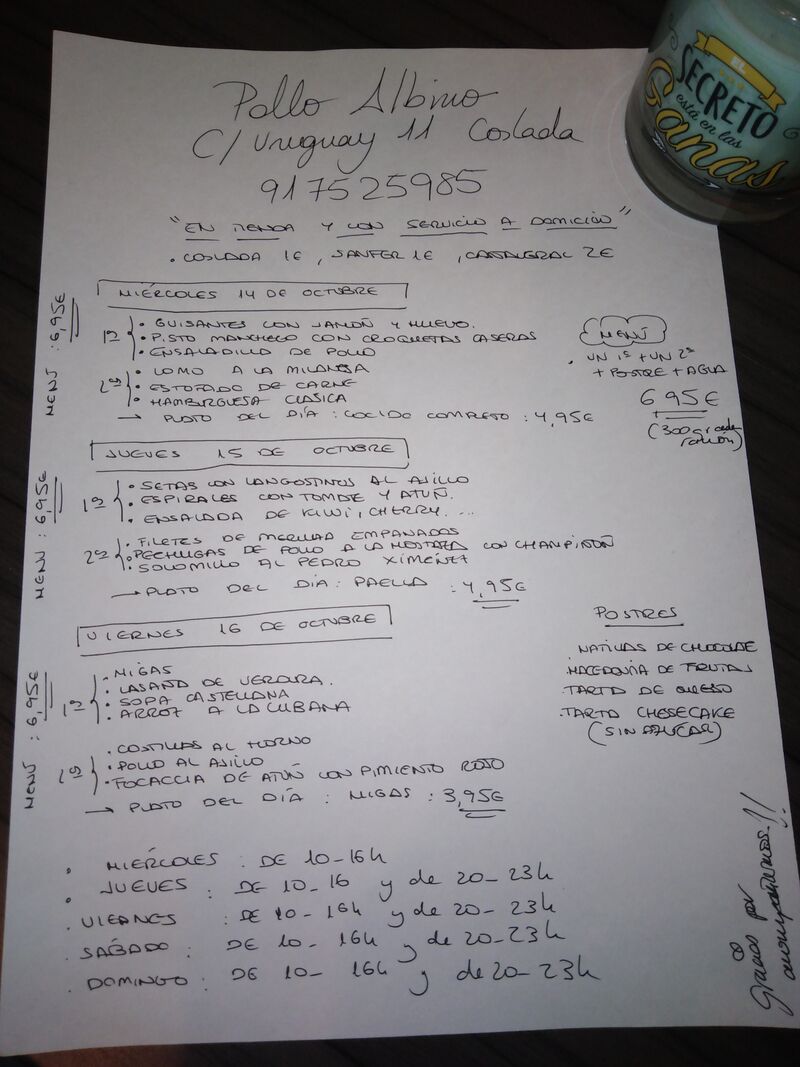 Pollo Albino
C/ Uruguay 11 Coslada
917525985
"EN TIENDA Y CON SERVICIO A DOMICILIO"
. COSLADA 1€, SANFER 1€, CAÑALGRAL 2€
MIÉRCOLES 14 DE OCTUBRE
MENÚ : 6,95€
1º
. GUISANTES CON JAMÓN Y HUEVO.
. PISTO MANCHEGO CON CROQUETAS CASERAS
. ENSALADILLA DE POLLO
2º
. LOMO A LA MILANESA
. ESTOFADO DE CARNE
. HAMBURGUESA CLASICA
→ PLATO DEL DÍA : COCIDO COMPLETO : 4,95€
MENÚ
. UN 1º + UN 2º
+ POSTRE + AGUA
6 95€
(300gr de ración)
JUEVES 15 DE OCTUBRE
MENÚ : 6,95€
1º
. SETAS CON LANGOSTINOS AL AJILLO
. ESPIRALES CON TOMATE Y ATÚN.
. ENSALADA DE KIWI, CHERRY. ...
2º
. FILETES DE MERLUZA EMPANADOS
. PECHUGAS DE POLLO A LA MOSTAZA CON CHAMPIÑÓN
. SOLOMILLO AL PEDRO XIMÉNEZ
→ PLATO DEL DÍA : PAELLA : 4,95€
VIERNES 16 DE OCTUBRE
MENÚ : 6,95€
1º
. MIGAS
. LASAÑA DE VERDURA.
. SOPA CASTELLANA
. ARROZ A LA CUBANA
2º
. COSTILLAS AL HORNO
. POLLO AL AJILLO
. FOCACCIA DE ATÚN CON PIMIENTO ROJO
→ PLATO DEL DÍA : MIGAS : 3,95€
POSTRES
. NATILLAS DE CHOCOLATE
. MACEDONIA DE FRUTAS
. TARTA DE QUESO
. TARTA CHESECAKE
(SIN AZUCAR)
. MIÉRCOLES : DE 10-16h
. JUEVES : DE 10-16 y de 20-23h
. VIERNES : DE 10-16h y de 20-23h
. SÁBADO : DE 10-16h y de 20-23h
. DOMINGO : DE 10-16h y de 20-23h
Gracias por
EL
SECRETO
está en las
Ganas